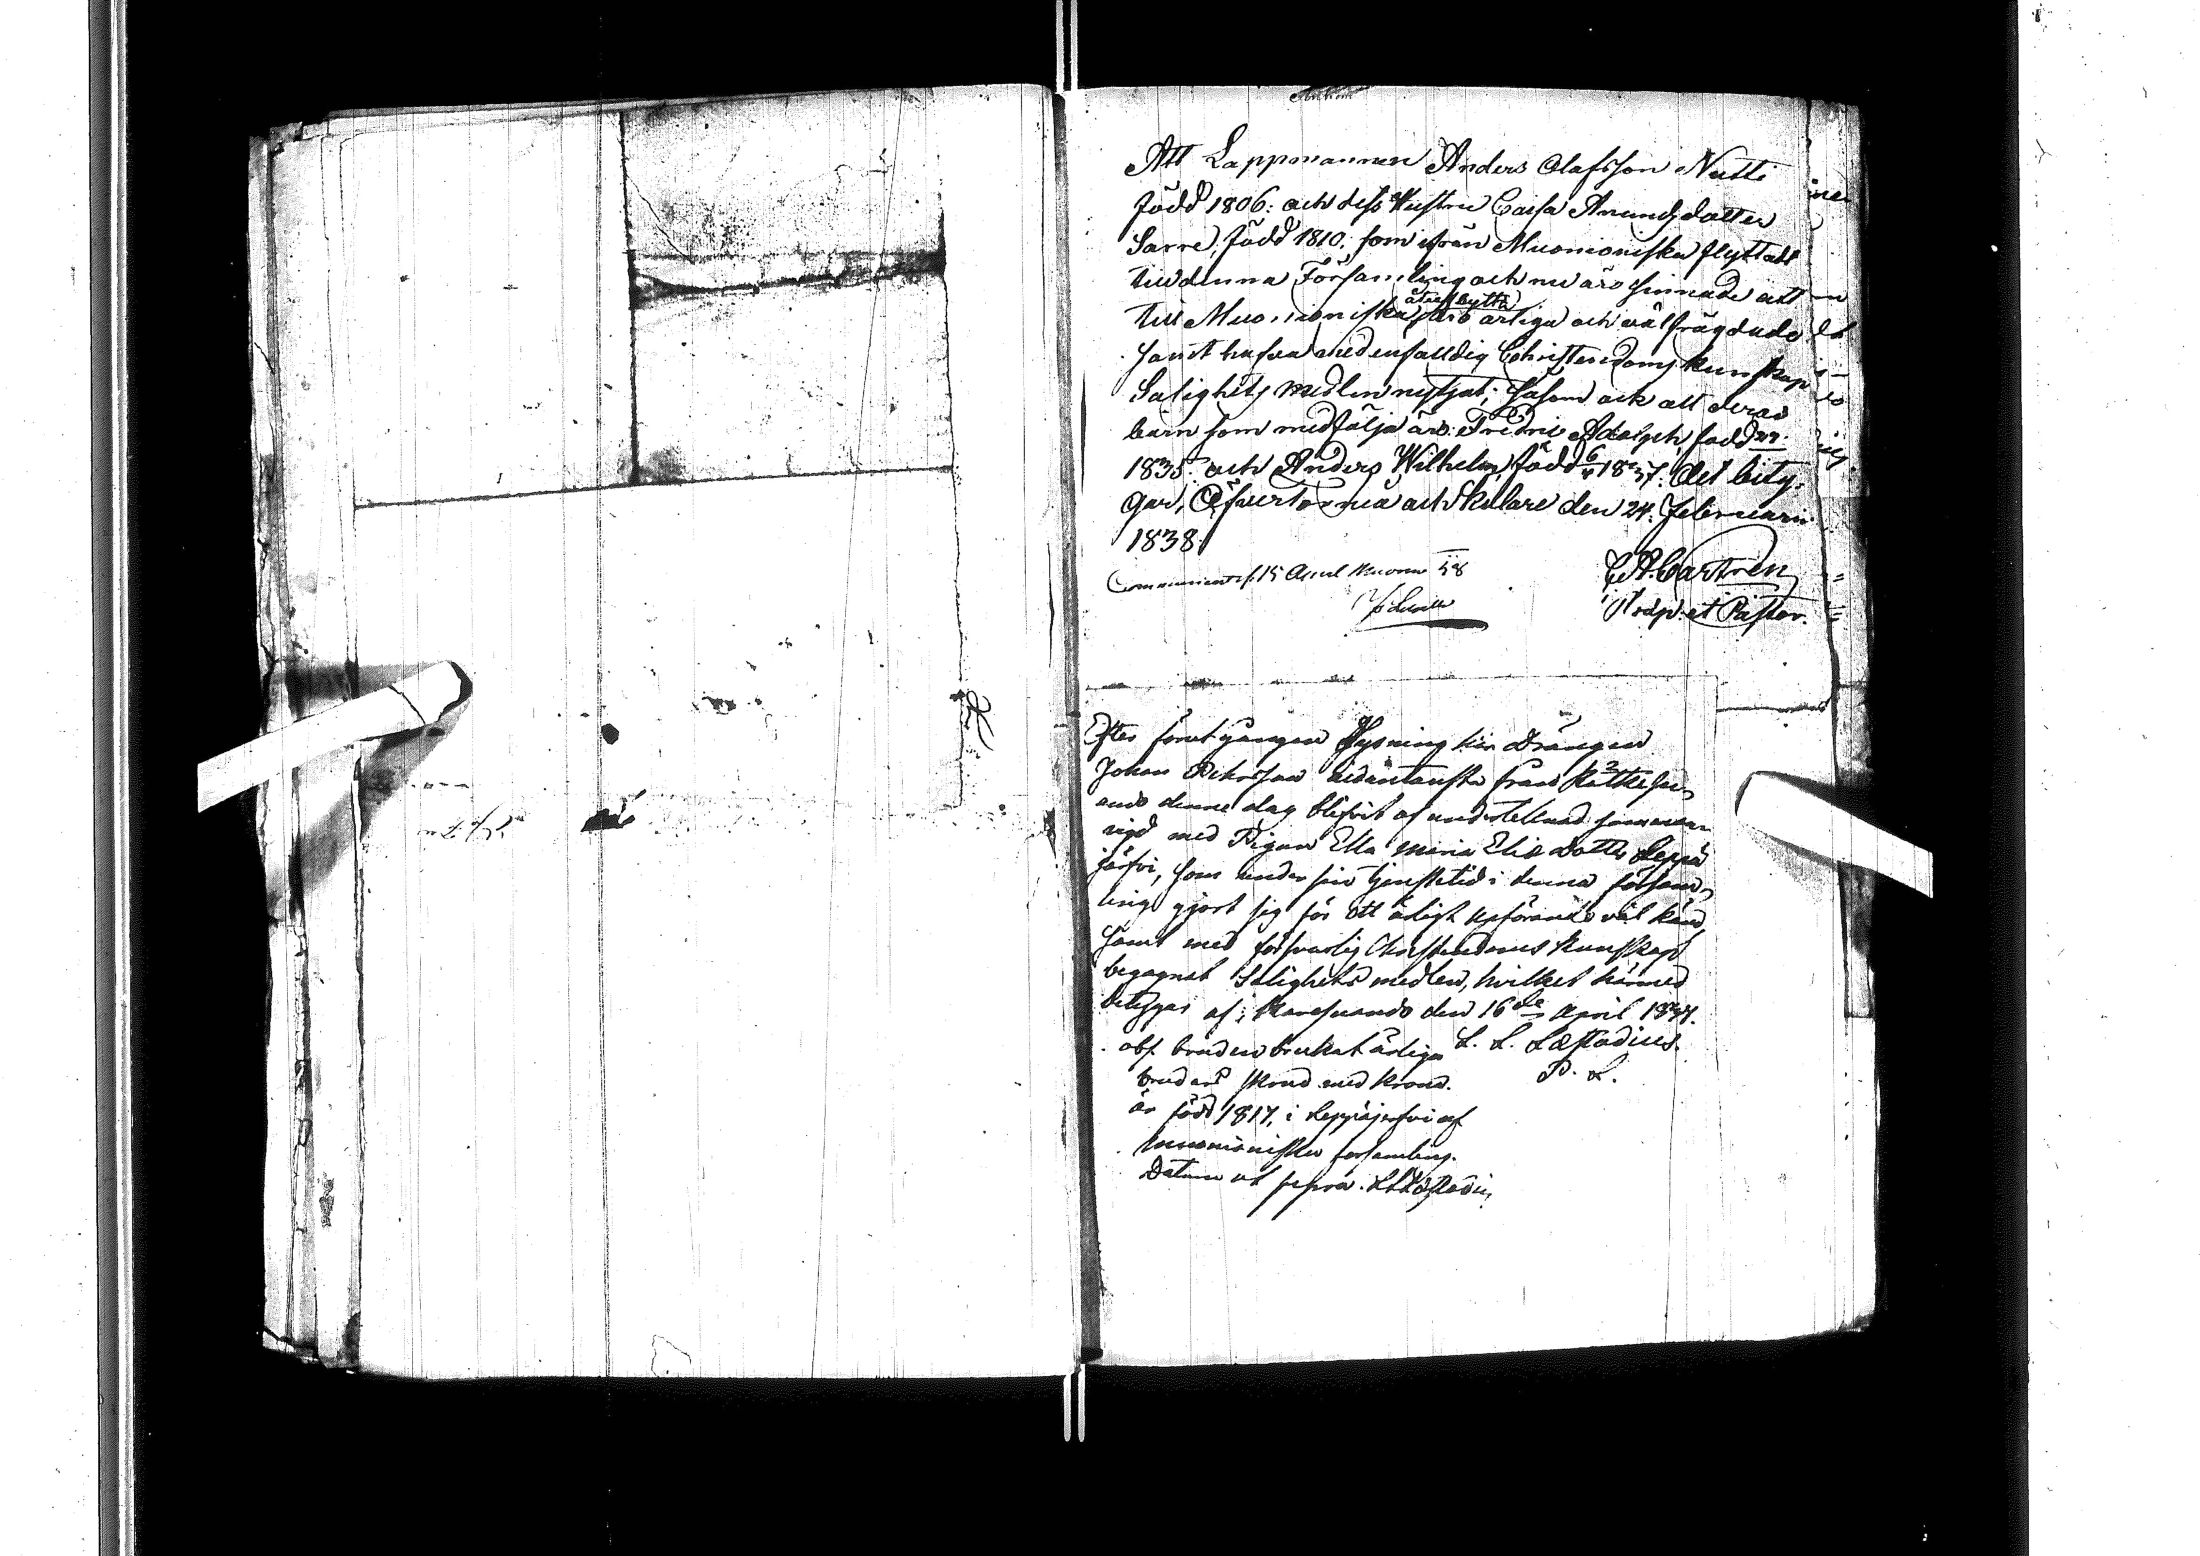 Att Lappmannen Anders Olafsson Nutti
född 1806: och dess Hustru Caisa Anundsdotter
Sarre, född 1810. som ifrån Muonioniska flyttadt
till denna Församling och nu äro sinnade att
återflytta
till Muonioniska, äro ärliga och välfrägdade
samt hafva med enfalldig Christendoms kunskap
Salighets medlen nyttjat; såsom ock att deras
barn som medfölja äro: Fredric Adolph, född
1835. och Anders Wilhelm, född 1837. Det bety-
gar, Öfvertorneå och Skulare den 24. Februarii
1838.
15 April 38
Castren
Præp. et Pastor.
Efter föregången Lysning har Drängen
Johan från Kätkesu-
ando denne dag blifvit af undertecknad samman
vigd med Pigan Ella Maria Elis Dotter Leppä
järfvi, som under sin tjenstetid i denna försam-
ling gjort sig för ett ärligt upförande väl känd,
samt med försvarlig Christendoms kunskap
begagnat Salighets medlen, hvilket härmed
betygas af; Karesuando den 16de April 1837.
obs. bruden brukat ärliga L. L. Læstadius.
brudars skrud med krona. P. L.
är född 1817, i Leppäjerfvi af
Muonioniska församling.
Datum ut supra. L L Læstadius